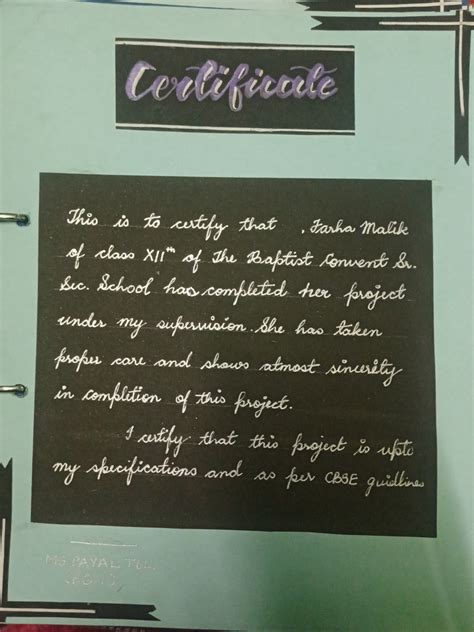 Certificate
This is to certify that , Farha Malik
of class XIIth of The Baptist Convent Sr.
Sec. School has completed her project
under my supervision. She has taken
proper care and shows atmost sincerety
in completion of this project.
I certify that this project is upto
my specifications and as per CBSE guidlines
MS PAYAL